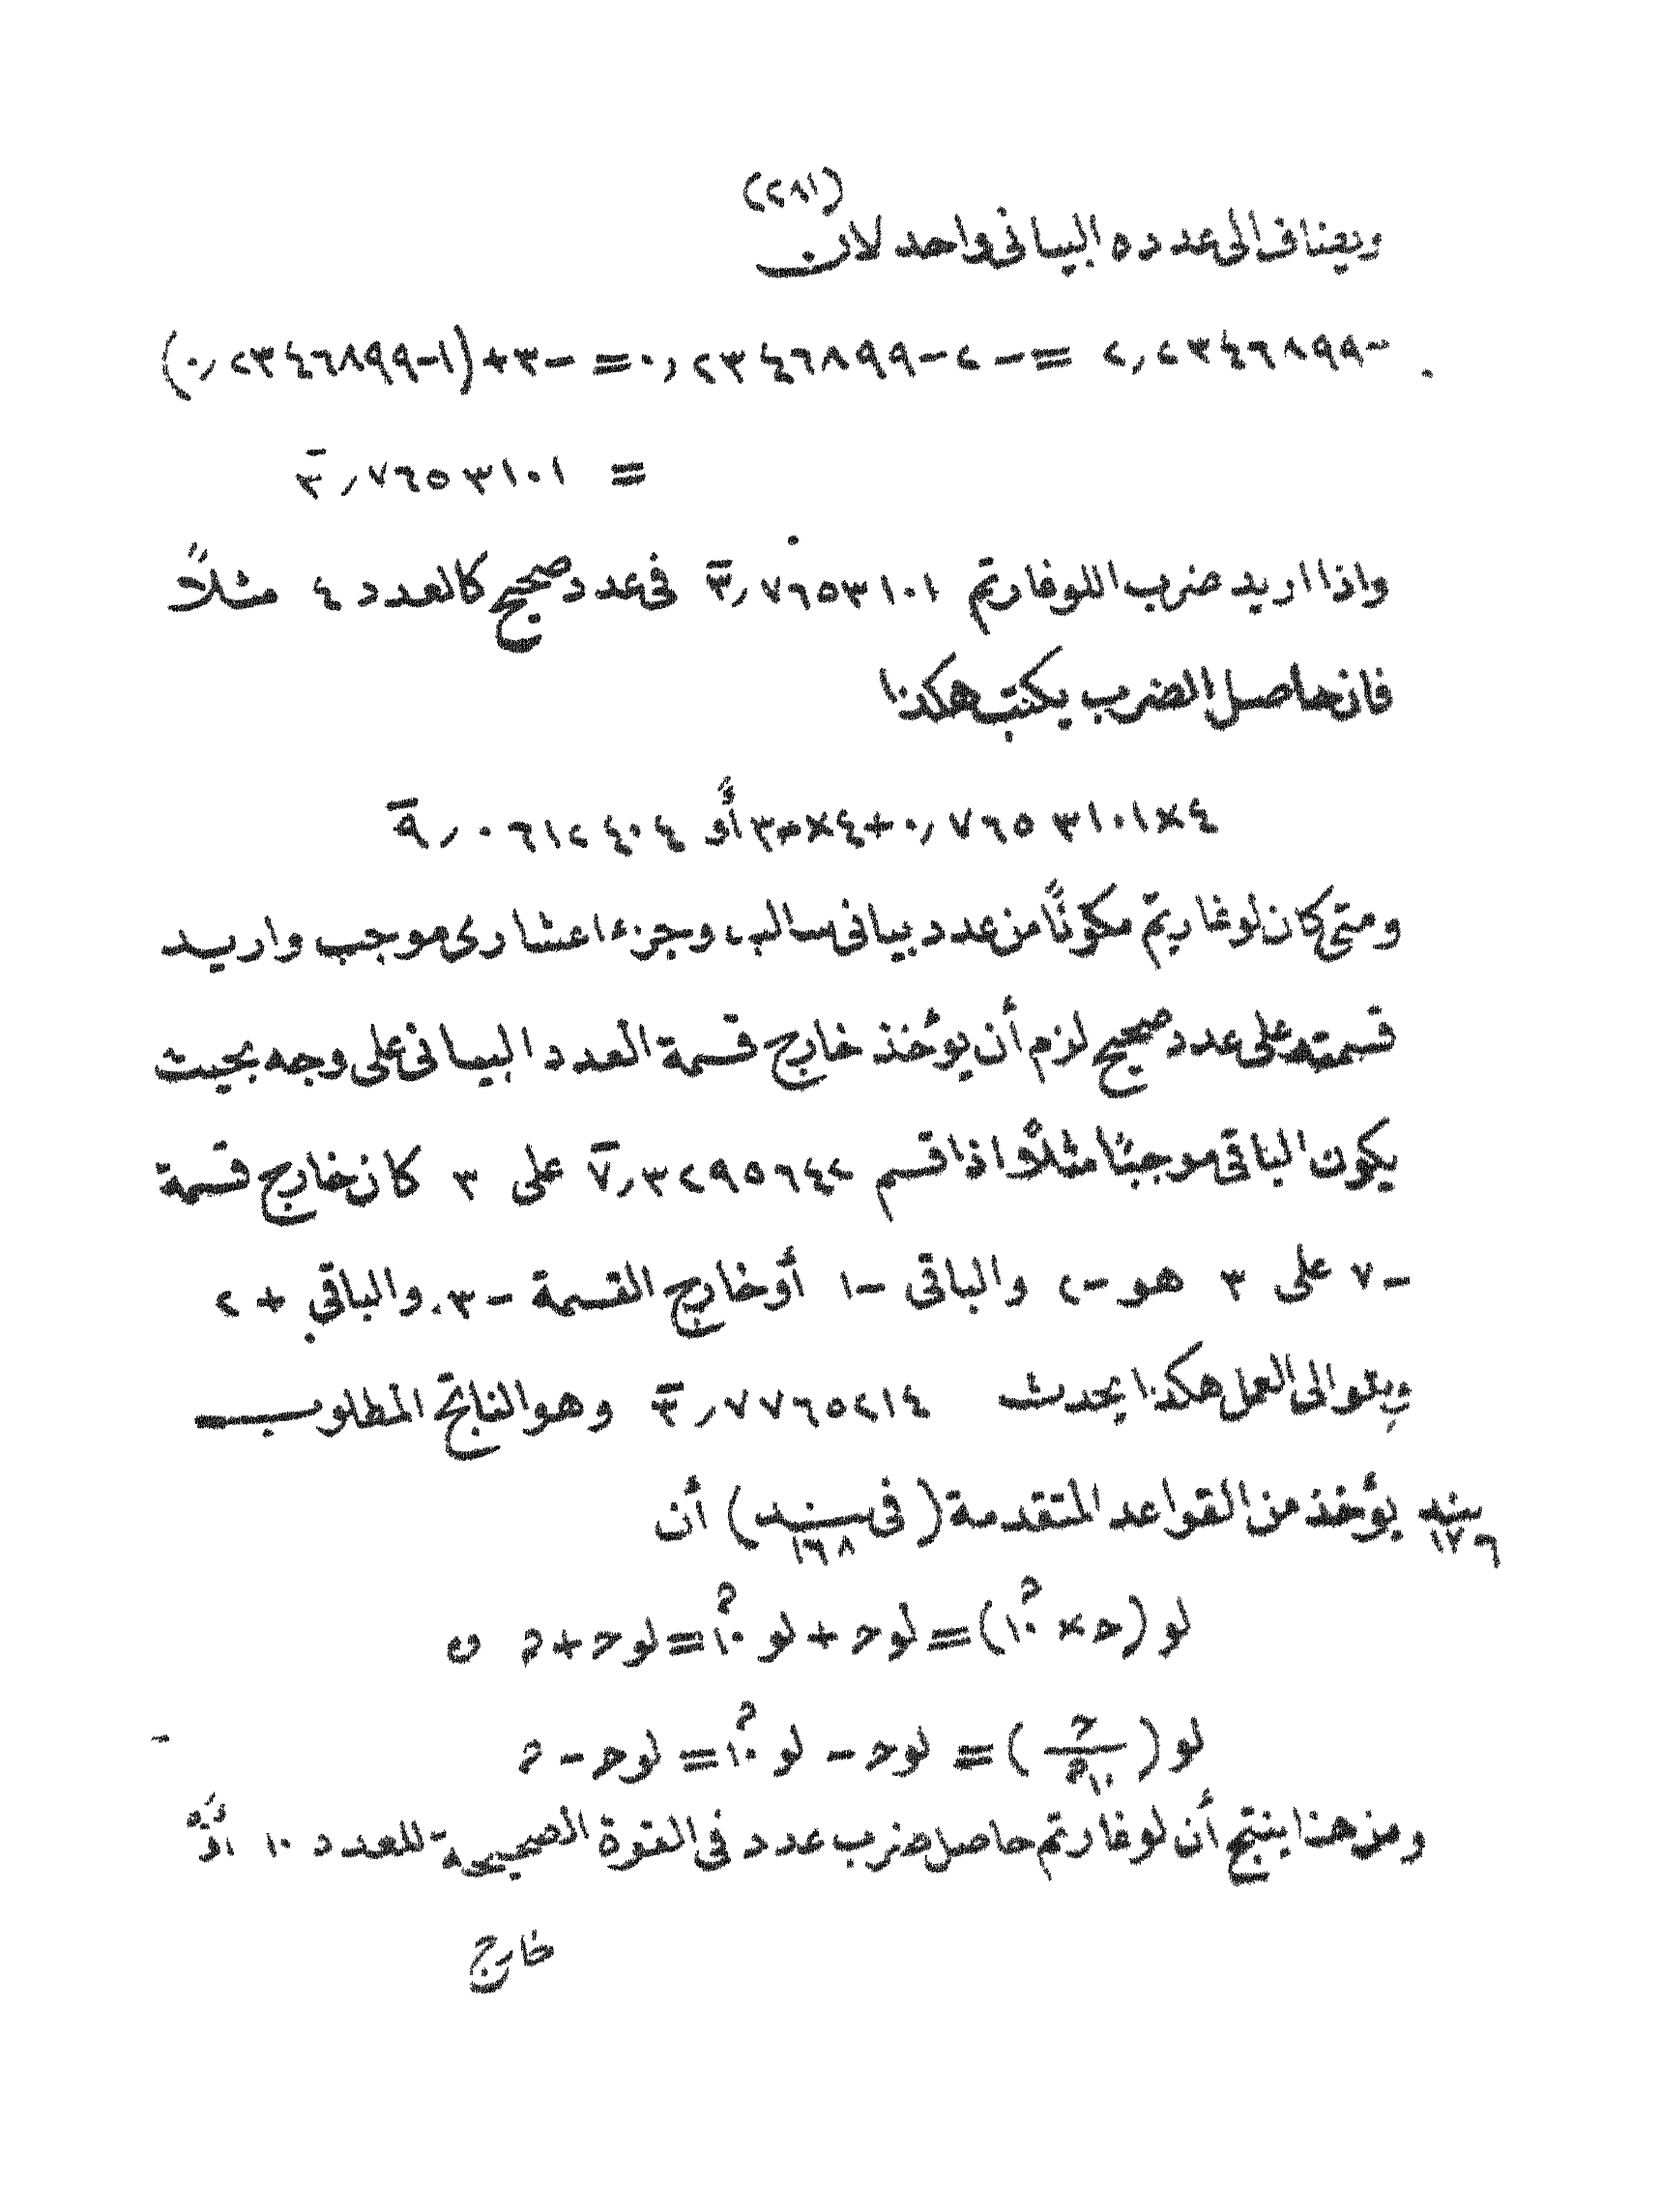 (٢٨١)
ويضاف الى عدده البيانى واحد لان
-٢,٢٣٤٦٨٩٩ = -٢-٠,٢٣٤٦٨٩٩ = -٣+(١-٠,٢٣٤٦٨٩٩)
= ٣̄,٧٦٥٣١٠١
واذا اريد ضرب اللوغارتم ٣̄,٧٦٥٣١٠١ فى عدد صحيح كالعدد ٤ مثلاً
فان حاصل الضرب يكتب هكذا
٤×٠,٧٦٥٣١٠١+٤×-٣ أو ٩̄,٠٦١٢٤٠٤
ومتى كان لوغاريتم مكوّناً من عدد بيانى سالب وجزء اعشارى موجب واريد
قسمته على عدد صحيح لزم أن يؤخذ خارج قسمة العدد البيانى على وجه بحيث
يكون الباقى موجبًا مثلاً اذا قسم ٧̄,٣٢٩٥٦٤٢ على ٣ كان خارج قسمة
-٧ على ٣ هو -٢ والباقى -١ أو خارج القسمة -٣ والباقى +٢
وبتوالى العمل هكذا يحدث ٣̄,٧٧٦٥٢١٤ وهو الناتج المطلوب
بند ١٧٦ يؤخذ من القواعد المتقدمة (فى بند ١٦٨) أن
لو (ح×١٠^م) = لو ح + لو ١٠^م = لو ح + م و
لو (ح/١٠^م) = لو ح - لو ١٠^م = لو ح - م
ومن هذا ينتج أن لوغارتم حاصل ضرب عدد فى القوة الصحيحة للعدد ١٠ أو
خارج